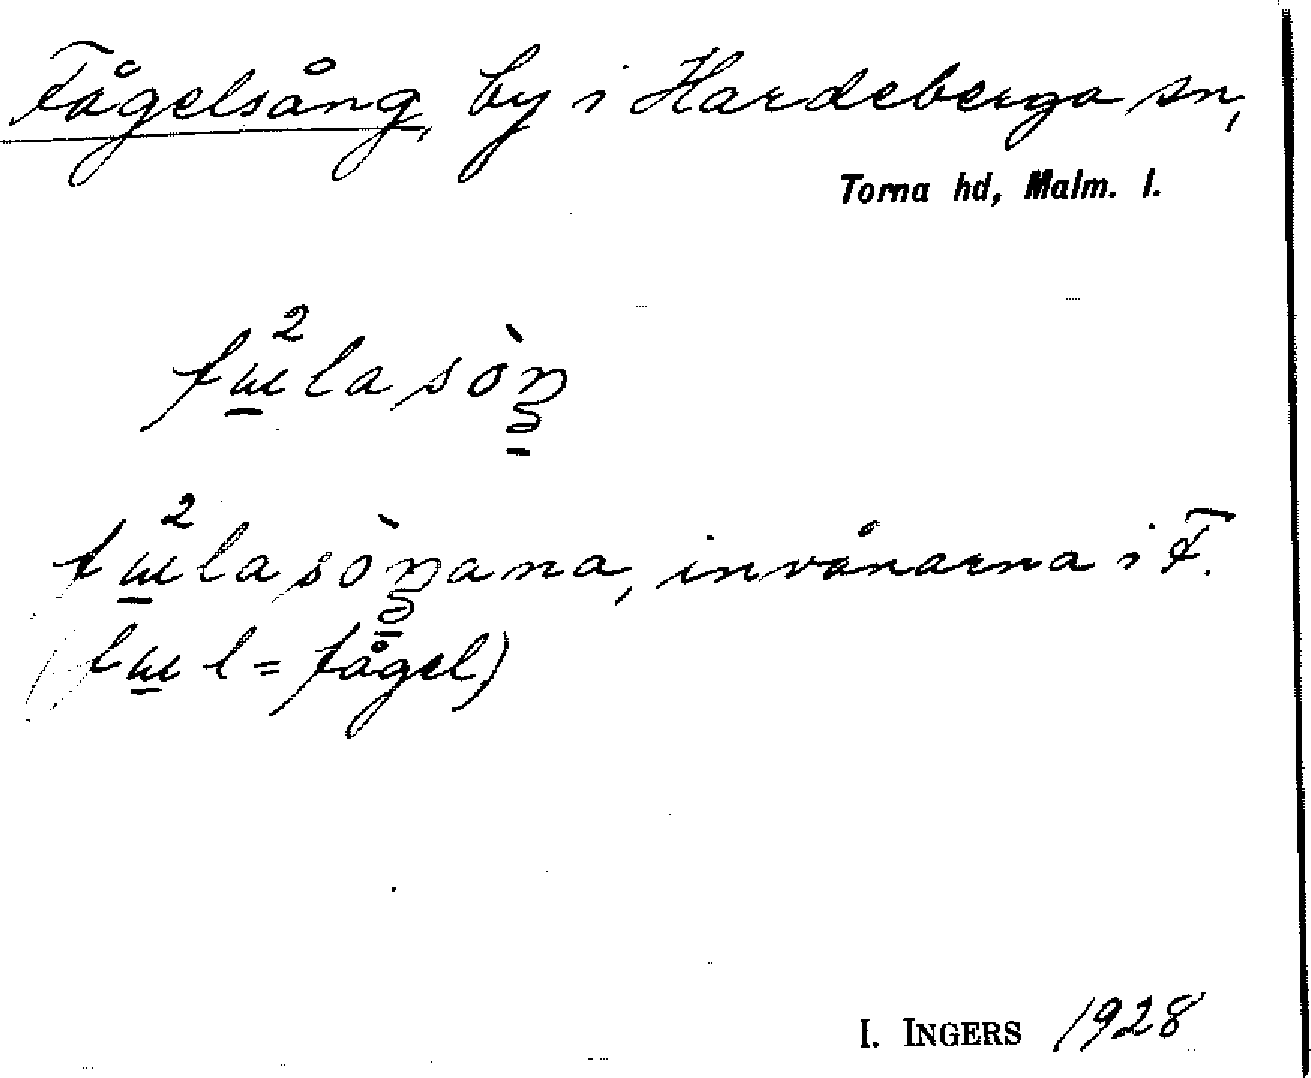 Fågelsång, by i Hardeberga sn,
Torna hd, Malm. l.
fɯ̱²lasòŋ̱
fɯ̱²lasòŋ̱ana, invånarna i F.
(fɯ̱l = fågel)
I. INGERS 1928